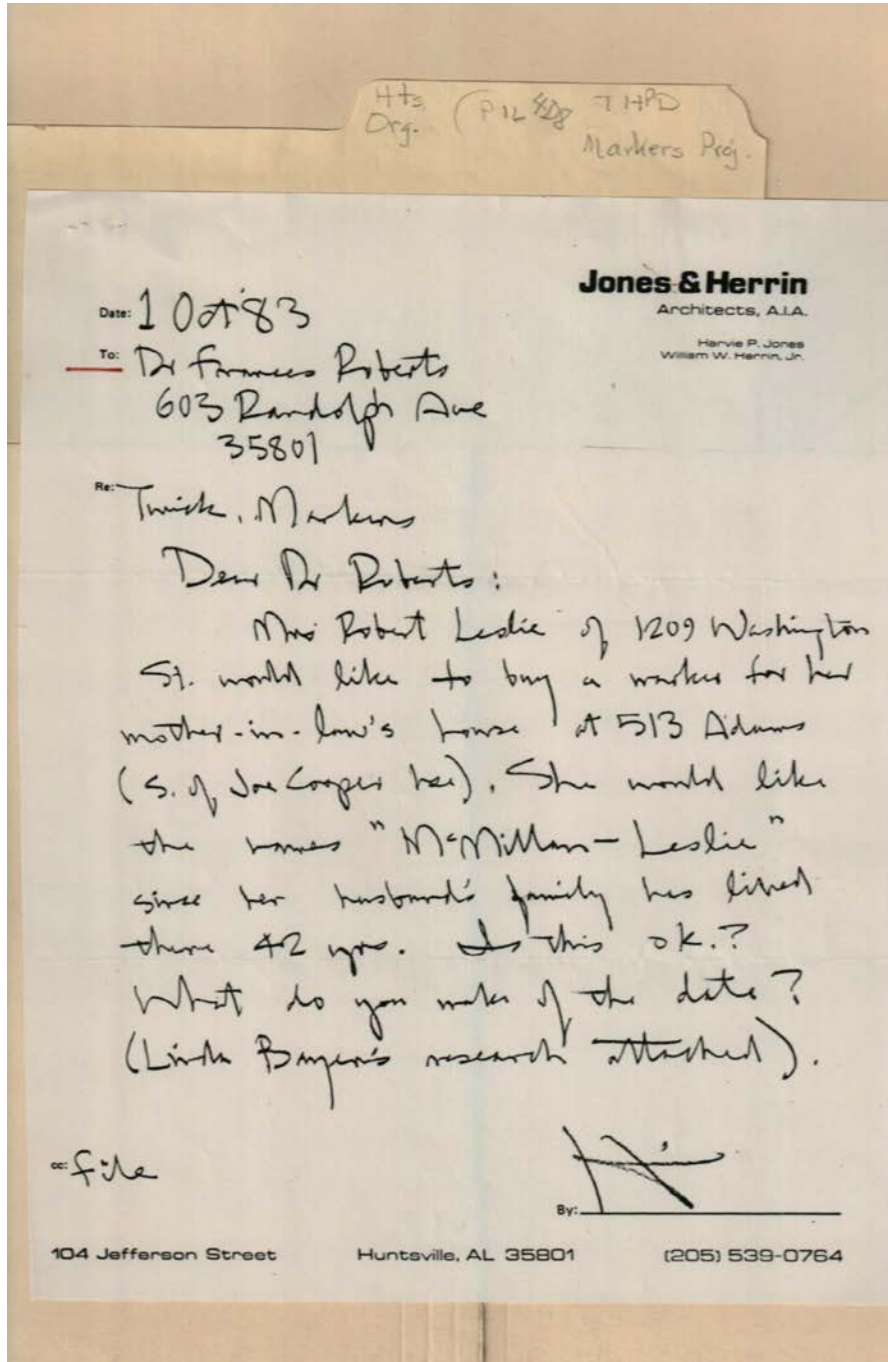 Hts. Org. (P12 THPD
Markers Proj.
Jones & Herrin
Architects, A.I.A.
Harvie P. Jones
William W. Herrin, Jr.
Date: 1 Oct '83
To: Dr Frances Roberts
603 Randolph Ave
35801
Re: Twick. Markers
Dear Dr Roberts:
Mrs Robert Leslie of 1209 Washington
St. would like to buy a marker for her
mother-in-law's house at 513 Adams
(S. of Joe Cooper hse). She would like
the names "McMillan-Leslie"
since her husband's family has lived
there 42 yrs. Is this ok.?
What do you make of the date?
(Linda Bayer's research attached).
cc: file
By:
104 Jefferson Street Huntsville, AL 35801 (205) 539-0764